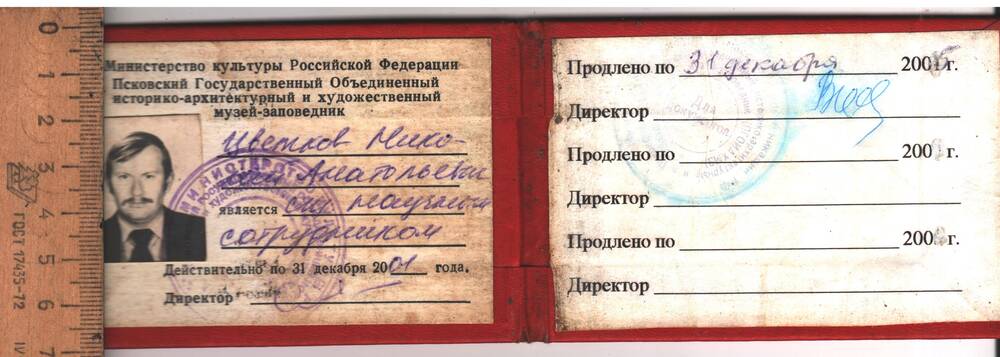 Министерство культуры Российской Федерации
Псковский Государственный Объединенный
историко-архитектурный и художественный
музей-заповедник
Цветков Нико-
лай Анатольевич
является ст. научным
сотрудником
Действительно по 31 декабря 2001 года.
Директор
Продлено по 31 декабря 200 г.
Директор
Продлено по 200 г.
Директор
Продлено по 200 г.
Директор
0
1
2
3
4
5
6
7
ГОСТ 17435-72
IV